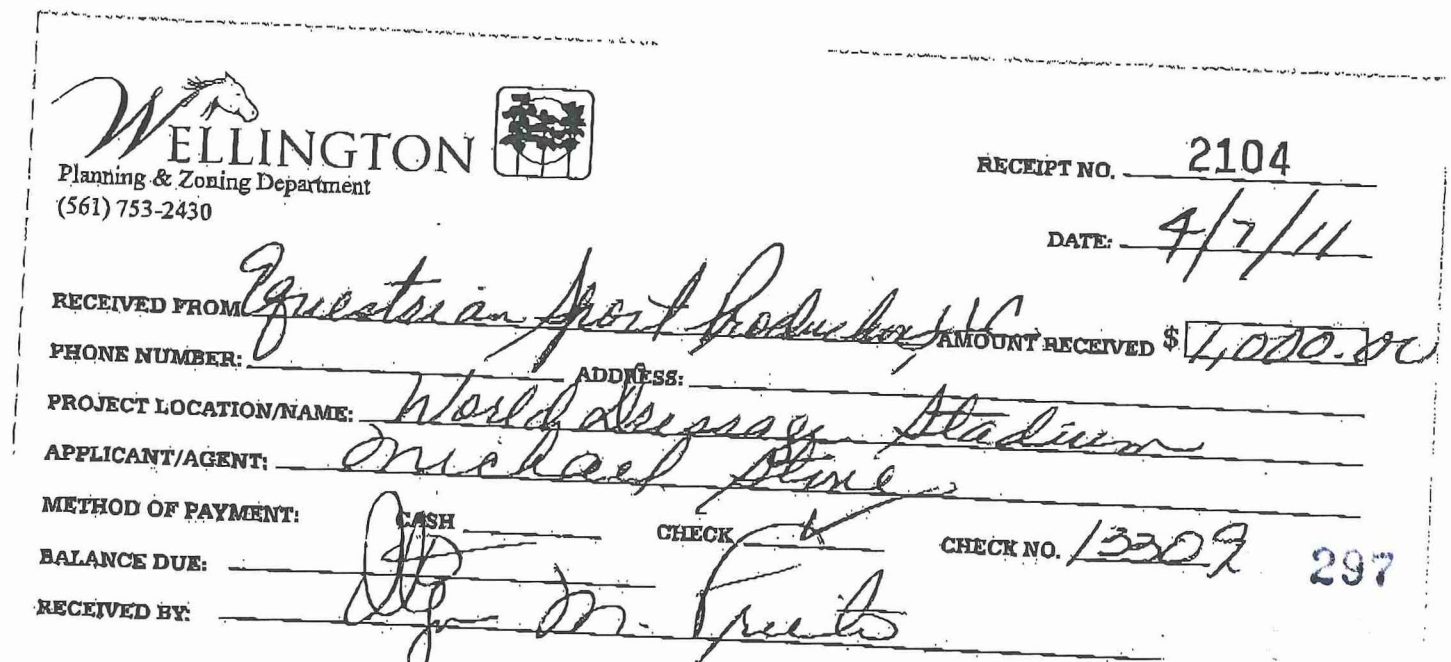 WELLINGTON
Planning & Zoning Department
(561) 753-2430
RECEIPT NO. 2104
DATE: 4/7/11
RECEIVED FROM Equestrian Sport Productions AMOUNT RECEIVED $ 1,000.00
PHONE NUMBER: ADDRESS:
PROJECT LOCATION/NAME: World Dressage Stadium
APPLICANT/AGENT: Michael Stone
METHOD OF PAYMENT: CASH CHECK ✓ CHECK NO.
BALANCE DUE:
297
RECEIVED BY: M.